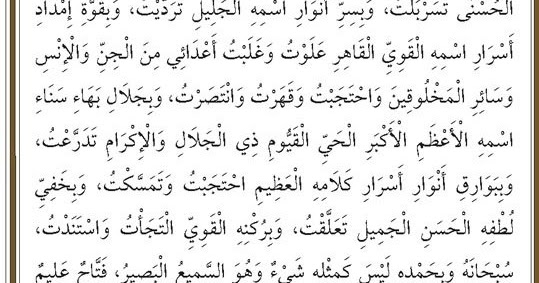 الْحُسْنَى تَسَرْبَلْتُ، وَبِسِرِّ أَنْوَارِ اسْمِهِ الْجَلِيلِ تَرَدَّيْتُ، وَبِقُوَّةِ إِمْدَادِ
أَسْرَارِ اسْمِهِ الْقَوِيِّ الْقَاهِرِ عَلَوْتُ وَغَلَبْتُ أَعْدَائِي مِنَ الْجِنِّ وَالْإِنْسِ
وَسَائِرِ الْمَخْلُوقِينَ وَاحْتَجَبْتُ وَقَهَرْتُ وَانْتَصَرْتُ، وَبِجَلَالِ بَهَاءِ سَنَاءِ
اسْمِهِ الْأَعْظَمِ الْأَكْبَرِ الْحَيِّ الْقَيُّومِ ذِي الْجَلَالِ وَالْإِكْرَامِ تَدَرَّعْتُ،
وَبِبَوَارِقِ أَنْوَارِ أَسْرَارِ كَلَامِهِ الْعَظِيمِ احْتَجَبْتُ وَتَمَسَّكْتُ، وَبِخَفِيِّ
لُطْفِهِ الْحَسَنِ الْجَمِيلِ تَعَلَّقْتُ، وَبِرُكْنِهِ الْقَوِيِّ الْتَجَأْتُ وَاسْتَنَدْتُ،
سُبْحَانَهُ وَبِحَمْدِهِ لَيْسَ كَمِثْلِهِ شَيْءٌ وَهُوَ السَّمِيعُ الْبَصِيرُ، فَتَّاحٌ عَلِيمٌ